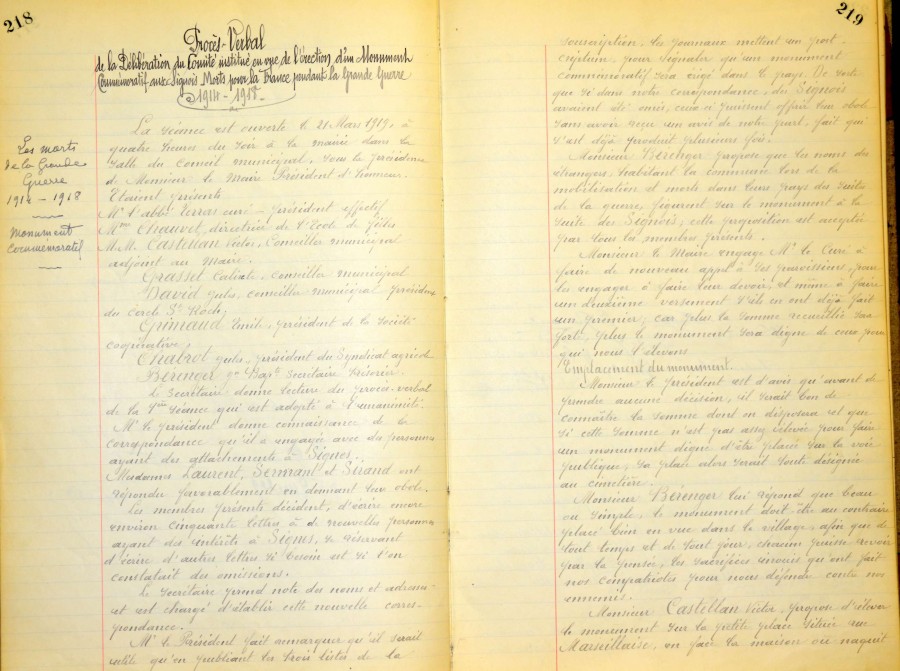 218
Procès-Verbal
de la Délibération du Comité institué en vue de l'érection d'un Monument
Commémoratif aux Signois Morts pour la France pendant la Grande Guerre
1914-1918-
Les morts
de la Grande
Guerre
1914-1918
Monument
Commémoratif
La séance est ouverte le 21 Mars 1919, à
quatre heures du soir à la mairie dans la
salle du Conseil municipal, sous la présidence
de Monsieur le Maire Président d'honneur.
Etaient présents
Mr l'abbé Terras curé - président effectif
Mme Chauvet, directrice de l'Ecole de filles
M.M. Castellan Victor, Conseiller municipal
adjoint au Maire.
Grasset Calixte, conseiller municipal
David Jules, conseiller municipal président
du cercle St Roch;
Grimaud Emile, président de la Société
coopérative;
Chabrol Jules, président du Syndicat agricole
Bérenger Jn Bapt. Secrétaire Trésorier.
Le Secrétaire donne lecture du procès-verbal
de la 1ère séance qui est adopté à l'unanimité.
Mr le président donne connaissance de la
correspondance qu'il a engagée avec des personnes
ayant des attachements à Signes.
Mesdames Laurent, Sermant et Sicand ont
répondu favorablement en donnant leur obole.
Les membres présents décident, d'écrire encore
environ cinquante lettres à de nouvelles personnes
ayant des intérêts à Signes, se réservant
d'écrire d'autres lettres si besoin est si l'on
constatait des omissions.
Le Secrétaire prend note des noms et adresses
et est chargé d'établir cette nouvelle corres-
pondance.
Mr le Président fait remarquer qu'il serait
utile qu'en publiant les trois listes de la
219
souscription, les journaux mettent un post-
criptum pour signaler qu'un monument
commémoratif sera érigé dans le pays. De sorte
que si dans notre correspondance, des Signois
avaient été omis, ceux-ci puissent offrir leur obole
sans avoir reçu un avis de notre part, fait qui
s'est déjà produit plusieurs fois.
Monsieur Bérenger propose que les noms des
étrangers habitant la commune lors de la
mobilisation et morts dans leurs pays des suites
de la guerre, figurent sur le monument à la
suite des Signois; cette proposition est acceptée
par tous les membres présents.
Monsieur le Maire engage Mr le Curé à
faire de nouveau appel à ses paroissiens, pour
les engager à faire leur devoir, et même à faire
un deuxième versement s'ils en ont déjà fait
un premier, car plus la somme recueillie sera
forte, plus le monument sera digne de ceux pour
qui nous l'élevons
Emplacement du monument.
Monsieur le président est d'avis qu'avant de
prendre aucune décision, il serait bon de
connaître la somme dont on disposera et que
si cette somme n'est pas assez élevée pour faire
un monument digne d'être placé sur la voie
publique, sa place alors serait toute désignée
au cimetière.
Monsieur Bérenger lui répond que beau
ou simple, le monument doit être au contraire
placé bien en vue dans le village, afin que de
tout temps et de tout jour, chacun puisse revoir
par la pensée, les sacrifices inouïs qu'ont fait
nos compatriotes pour nous défendre contre nos
ennemis.
Monsieur Castellan Victor, propose d'élever
le monument sur la petite place située rue
Marseillaise, en face la maison où naquit